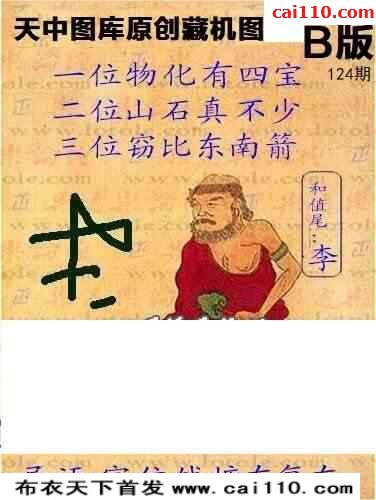 cai110.com
天中图库原创藏机图
B版
124期
一位物化有四宝
二位山石真不少
三位窈比东南箭
和值尾：李
布衣天下首发 www.cai110.com